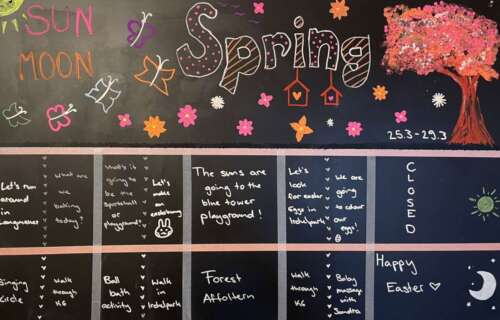 SUN
MOON
Spring
25.3-29.3
Let's run
around
in
What are
we
baking
today?
What's it
going to
be the
sportshall
or
playground?
Let's
make
an
The suns are
going to the
blue tower
playground!
Let's
look
for easter
Eggs in
Irchelpark!
We are
going
to colour
our
eggs!
CLOSED
Singing
Circle
Walk
through
K6
Ball
bath
activity
Walk
in
Irchelpark
Forest
Affoltern
Walk
through
K6
Baby
massage
with
Jandra
Happy
Easter